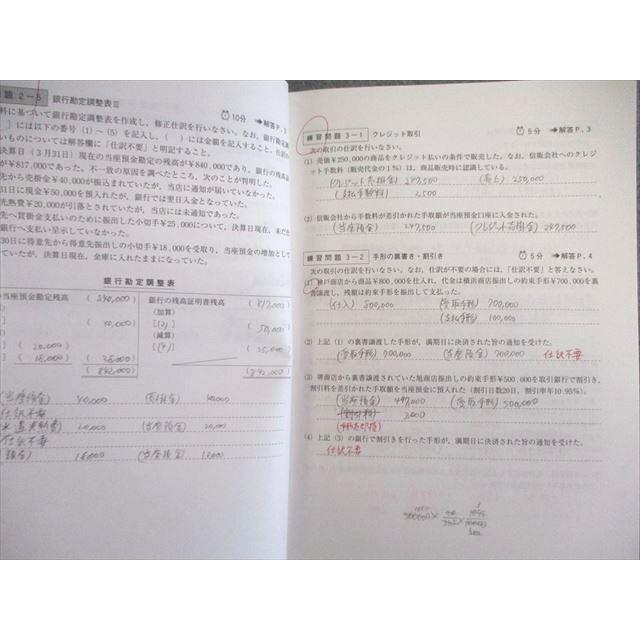 題 2-5 銀行勘定調整表Ⅲ
10分 ➜解答P.3
料に基づいて銀行勘定調整表を作成し、修正仕訳を行いなさい。なお、銀行勘定調
］には以下の番号（1）〜（5）を記入し、（ ）には金額を記入すること。仕訳の
いものについては解答欄に「仕訳不要」と明記すること。
決算日（3月31日）現在の当座預金勘定の残高が¥840,000であり、銀行の残高
が¥817,000であった。不一致の原因を調べたところ、次のことが判明した。
先から売掛金¥40,000が振込まれていたが、当店に通知が届いていなかった。
31日に現金¥50,000を預入れたが、銀行では翌日入金となっていた。
光熱費¥20,000が引落とされていたが、当店には未通知であった。
先へ買掛金支払いのために振出した小切手¥25,000について、決算日現在、未だ
銀行へ支払い呈示していなかった。
30日に得意先から得意先振出しの小切手¥18,000を受取り、当座預金の増加として
ていたが、決算日現在、金庫に入れたままになっていた。
銀行勘定調整表
当座預金勘定残高 (840,000) 銀行の残高証明書残高 (817,000)
］ (40,000) （加算）
［(2)］ (50,000)
（減算）
］ (20,000) ［(4)］ (25,000)
］ (18,000) (38,000)
(842,000) (842,000)
(当座預金) 40,000 (売掛金) 40,000
仕訳不要
(水道光熱費) 20,000 (当座預金) 20,000
仕訳不要
現金) 18,000 (当座預金) 18,000
練習問題 3-1 クレジット取引 5分 ➜解答P.3
次の取引の仕訳を行いなさい。
(1) 売価¥250,000の商品をクレジット払いの条件で販売した。なお、信販会社へのクレジッ
ト手数料（販売代金の1%）は、商品販売時に認識している。
(クレジット売掛金) 247,500 (売上) 250,000
(支払手数料) 2,500
(2) 信販会社から手数料が差引かれた手取額が当座預金口座に入金された。
(当座預金) 247,500 (クレジット売掛金) 247,500
練習問題 3-2 手形の裏書き・割引き 5分 ➜解答P.4
次の取引の仕訳を行いなさい。なお、仕訳が不要の場合には、「仕訳不要」と答えなさい。
(1) 神戸商店から商品¥800,000を仕入れ、代金は横浜商店振出しの約束手形¥700,000を裏
書譲渡し、残額は約束手形を振出して支払った。
(仕入) 800,000 (受取手形) 700,000
(支払手形) 100,000
(2) 上記（1）の裏書譲渡した手形が、満期日に決済された旨の通知を受けた。
(受取手形) 700,000 (当座預金) 700,000 仕訳不要
(3) 堺商店から裏書譲渡されていた旭商店振出しの約束手形¥500,000を取引銀行で割引き、
割引料を差引かれた手取額を当座預金に預入れた（割引日数20日、割引率年10.95%）。
(当座預金) 497,000 (受取手形) 500,000
(割引料) 3,000
(手形売却損)
(4) 上記（3）の銀行で割引きを行った手形が、満期日に決済された旨の通知を受けた。
仕訳不要